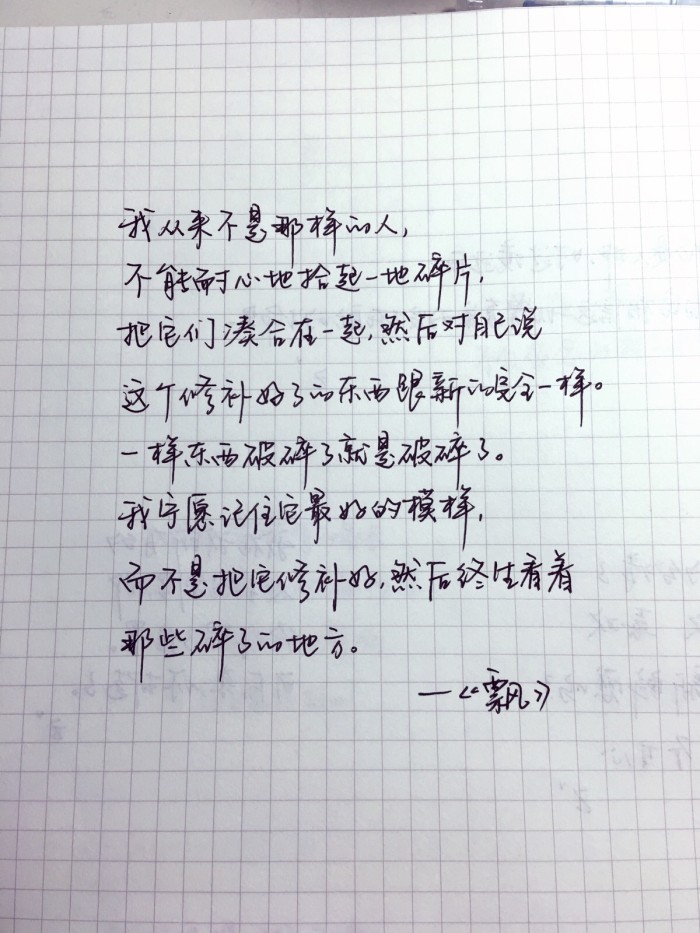 我从来不是那样的人，
不能耐心地拾起一地碎片，
把它们凑合在一起，然后对自己说
这个修补好了的东西跟新的完全一样。
一样东西破碎了就是破碎了。
我宁愿记住它最好的模样，
而不是把它修补好，然后终生看着
那些碎了的地方。
—《飘》